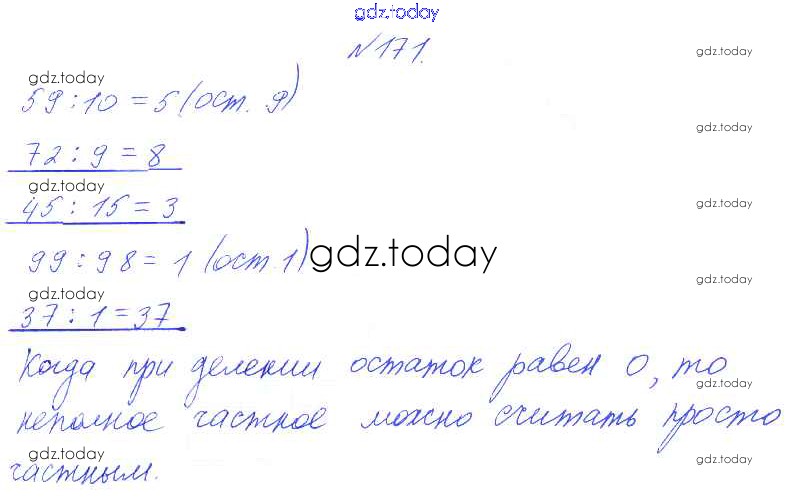 gdz.today
№171.
gdz.today
gdz.today
59:10=5(ост. 9)
gdz.today
72:9=8
gdz.today
gdz.today
45:15=3
99:98=1(ост.1)
gdz.today
gdz.today
gdz.today
37:1=37
gdz.today
Когда при делении остаток равен 0, то
gdz.today
неполное частное можно считать просто
gdz.today
gdz.today
частным.